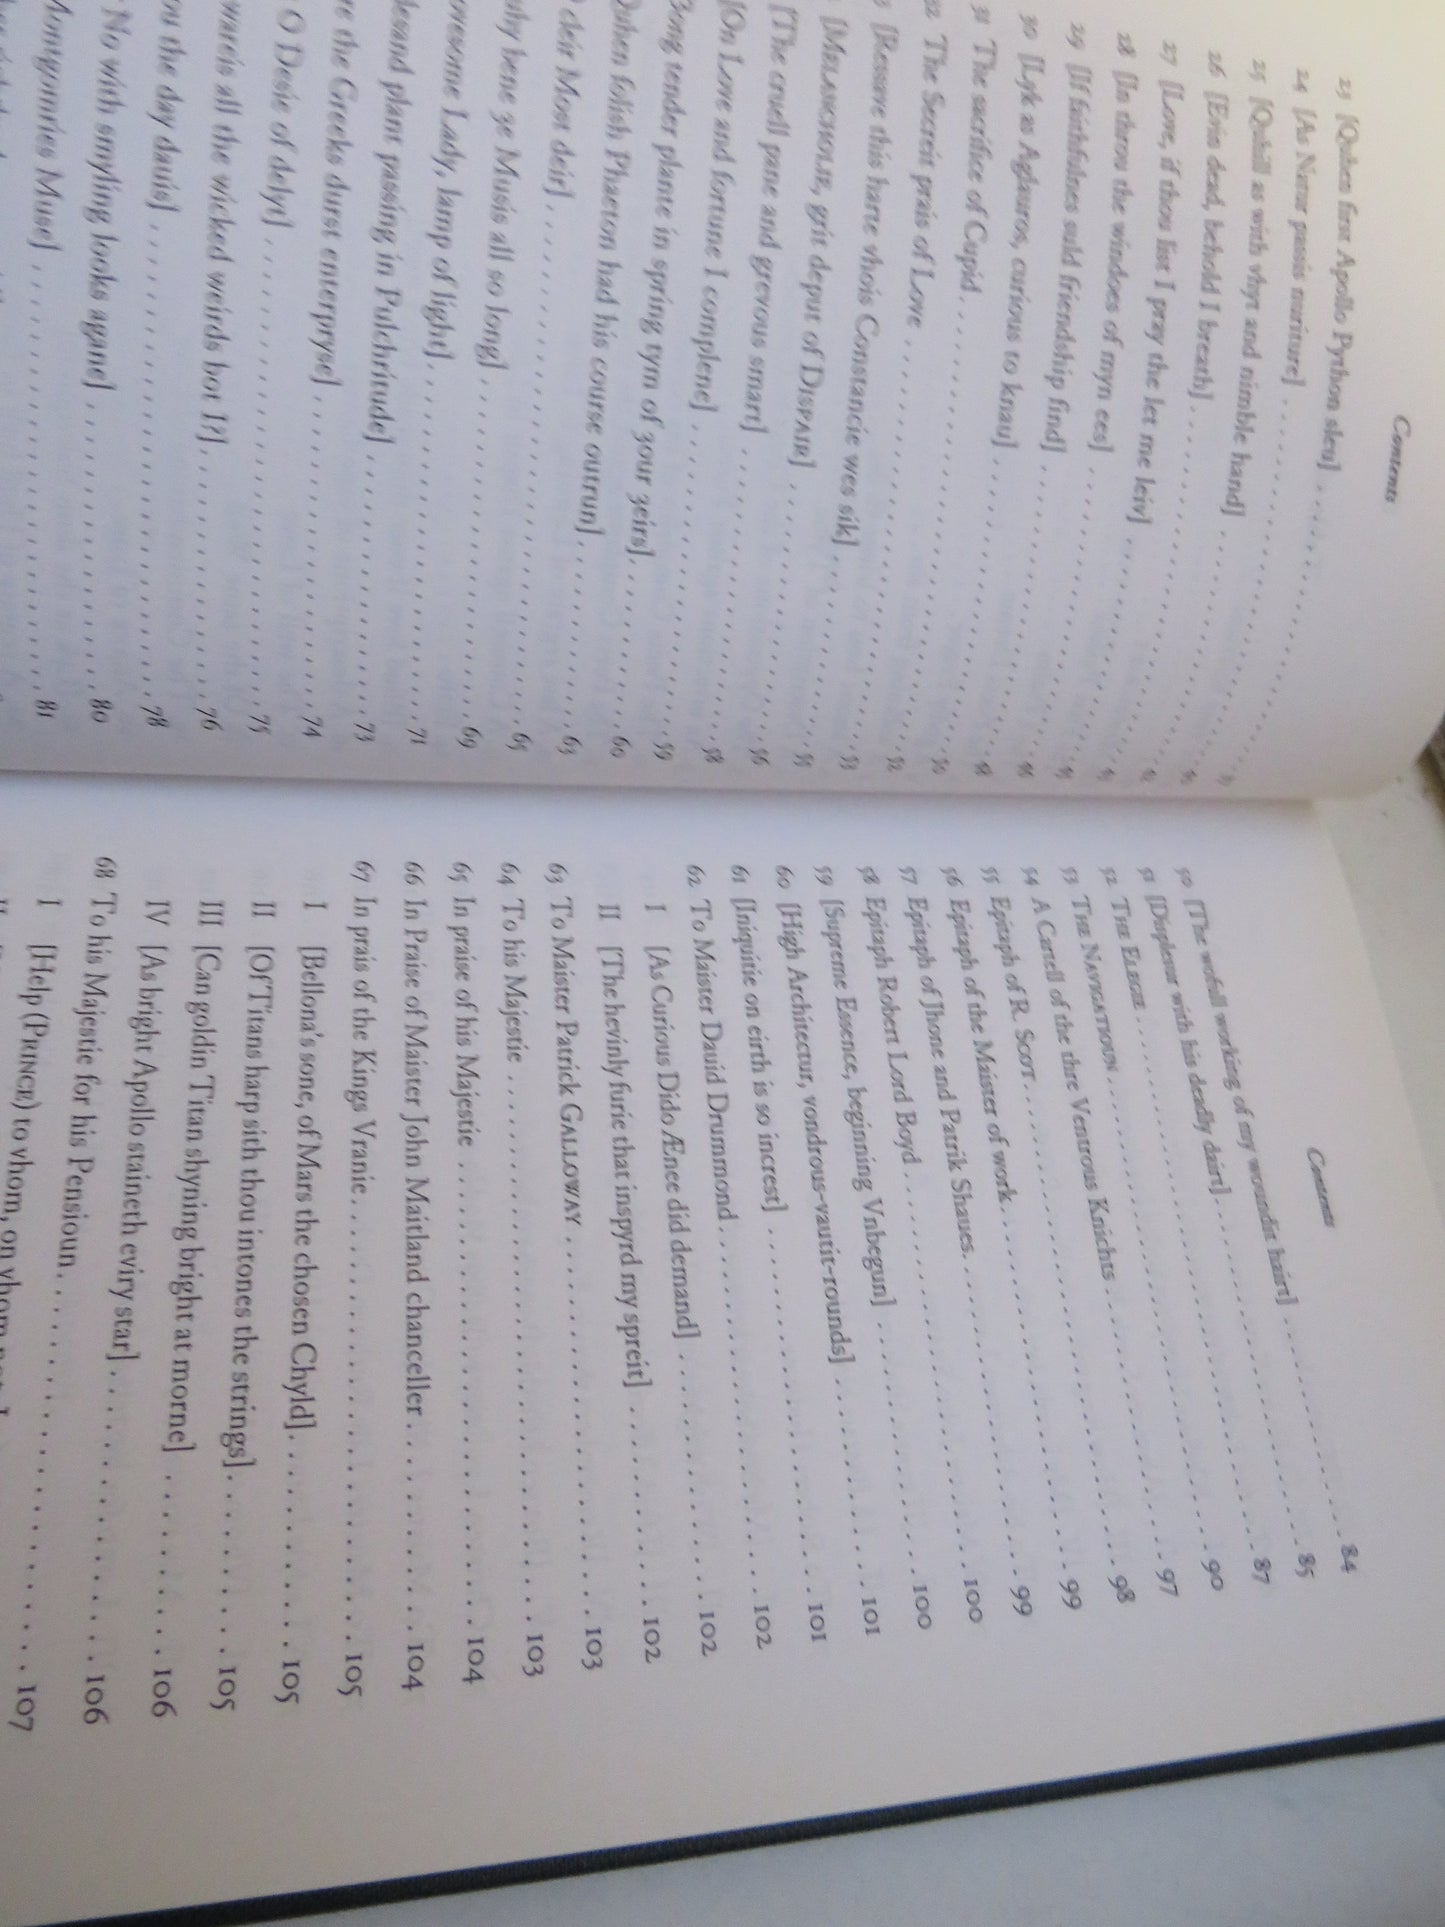 Contents
23 [Quhen first Apollo Python sleu]
24 [As Natur passis nuriture]
25 [Quhill as with vhyt and nimble hand]
26 [Evin dead, behold I breath]
27 [Love, if thou list I pray the let me leiv]
28 [In throu the windoes of myn ees]
29 [If faithfulnes suld friendship find]
30 [Lyk as Aglauros, curious to knau]
31 The sacrifice of Cupid
32 The Secreit prais of Love
3 [Resave this harte vhois Constancie wes sik]
[Melancholie, grit deput of Dispair]
[The cruell pane and grevous smart]
[On Love and fortune I complene]
Zong tender plante in spring tym of ȝour ȝeirs]
Quhen folish Phaeton had his course outrun]
cleir Most deir]
why bene ȝe Musis all so long]
Lady, lamp of light]
plant passing in Pulchritude] 73
the Greeks durst enterpryse] 74
O Dessie of delyt] 75
wareis all the wicked weirds bot I?] 76
the day dauis] 78
No with smyling looks agane] 80
Montgomries Muse] 81
Contents
50 [The wofull working of my woundit hairt] 84
51 [Displesur with his deadly dairt] 85
52 The Elegie 87
53 The Navigatioun 90
54 A Cartell of the thre Ventrous Knichts 97
55 Epitaph of R. Scot 98
56 Epitaph of the Maister of work 99
57 Epitaph of Jhone and Patrik Shaues 99
58 Epitaph Robert Lord Boyd 100
59 [Supreme Essence, beginning Vnbegun] 100
60 [High Architectur, vondrous-vautit-rounds] 101
61 [Iniquitie on eirth is so increst] 101
62 To Maister Dauid Drummond 102
I [As Curious Dido Ænee did demand] 102
II [The hevinly furie that inspyrd my spreit] 102
63 To Maister Patrick Galloway 103
64 To his Majestie 103
65 In praise of his Majestie 104
66 In Praise of Maister John Maitland chanceller 104
67 In prais of the Kings Vranie 105
I [Bellona's sone, of Mars the chosen Chyld] 105
II [Of Titans harp sith thou intones the strings] 105
III [Can goldin Titan shyning bright at morne] 106
IV [As bright Apollo staineth eviry star] 106
68 To his Majestie for his Pensioun 107
I [Help (Prince) to vhom, on vhom not I